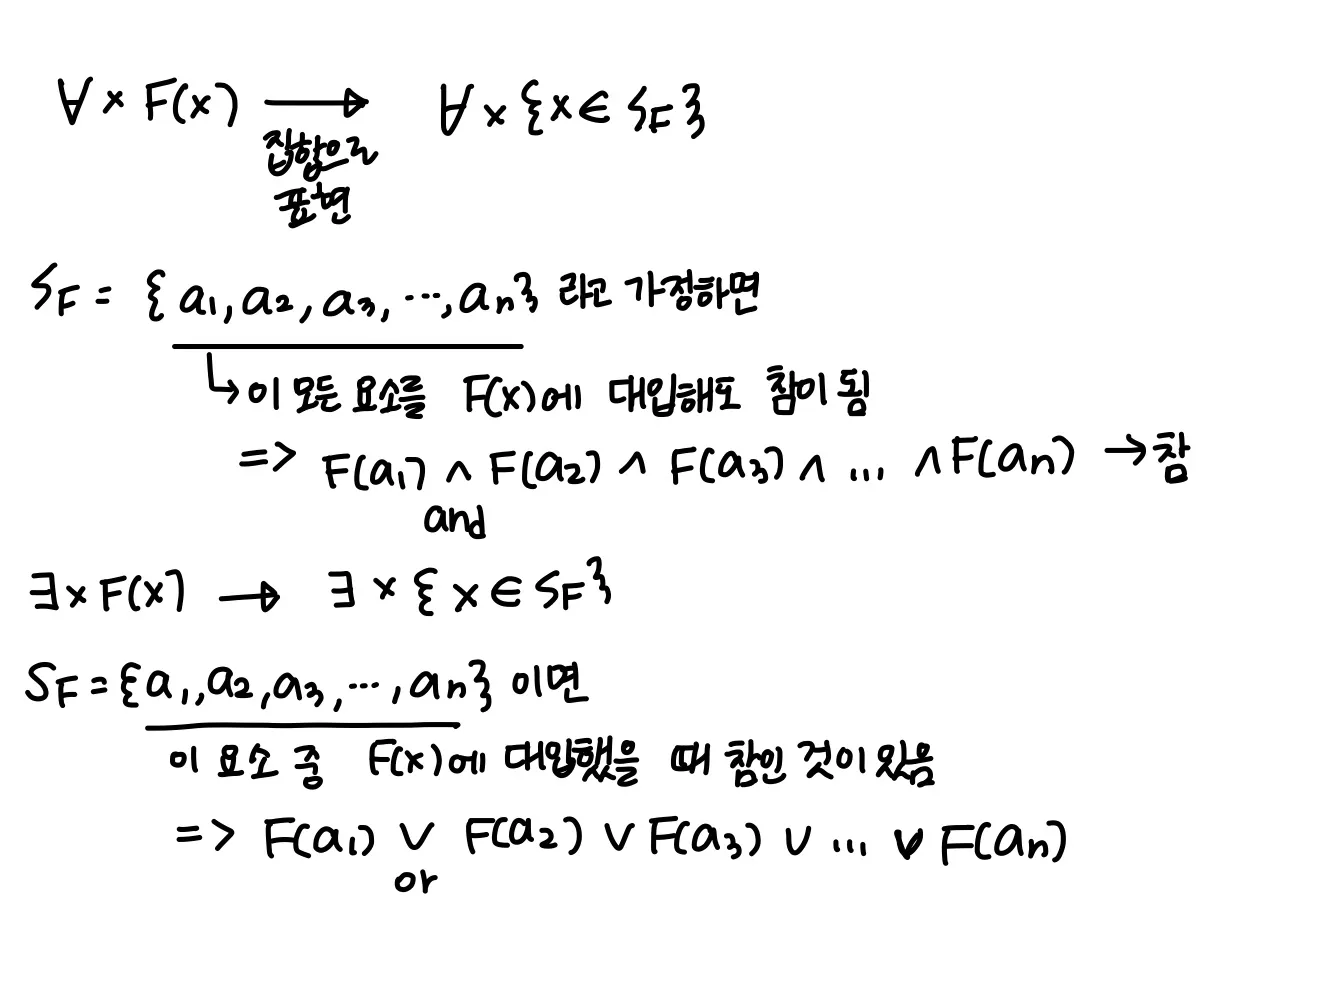 ∀x F(x) → ∀x {x ∈ S_F}
집합으로
표현
S_F = {a₁, a₂, a₃, ⋯, aₙ} 라고 가정하면
↳ 이 모든 요소를 F(x)에 대입해도 참이 됨
=> F(a₁) ∧ F(a₂) ∧ F(a₃) ∧ ... ∧ F(aₙ) → 참
and
∃x F(x) → ∃x {x ∈ S_F}
S_F = {a₁, a₂, a₃, ⋯, aₙ} 이면
이 요소 중 F(x)에 대입했을 때 참인 것이 있음
=> F(a₁) ∨ F(a₂) ∨ F(a₃) ∨ ... ∨ F(aₙ)
or